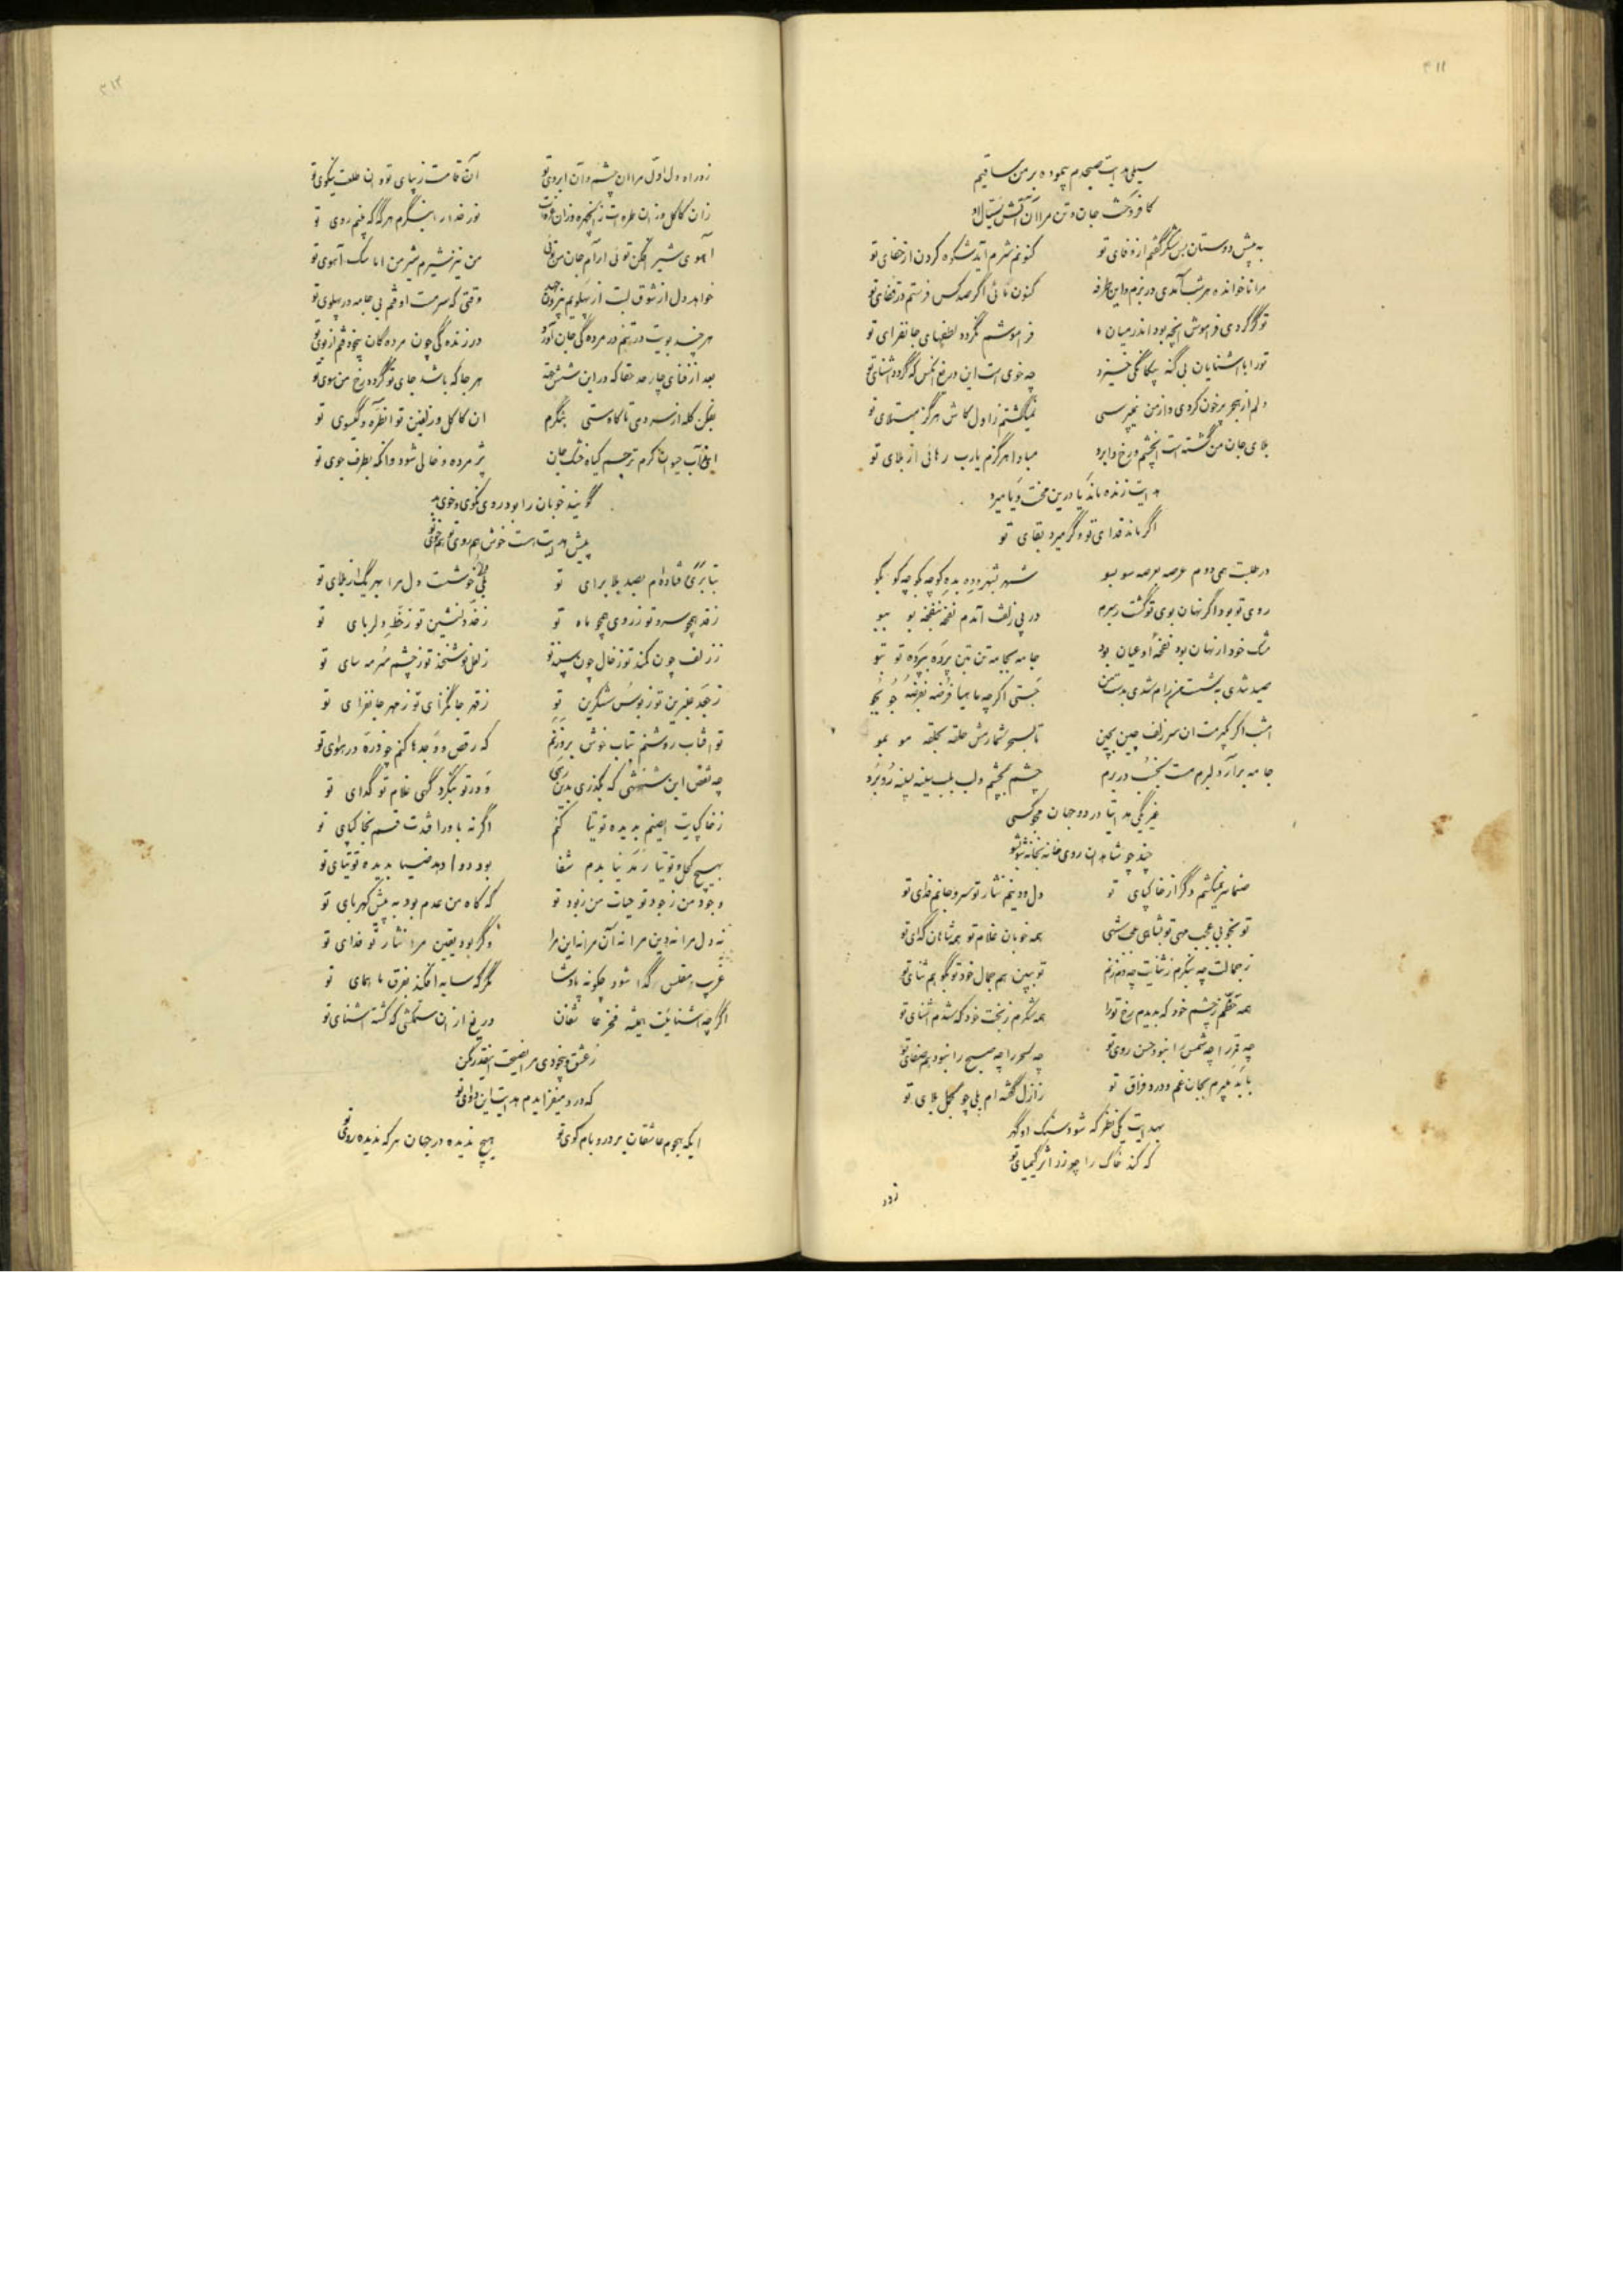 ۳۱۱
سیلی هدایت صبحدم پیموده بر من ساقیم
کافروخت جان و تن مرا آن آتش سیال او
به پیش دوستان بس شکر گفتم از وفای تو کنونم شرم آید شکوه کردن از جفای تو
مرا ناخوانده هر شب آمدی در بزم و این طرفه کنون نائی اگر صد کس فرستم در قفای تو
تو گر کردی فراموش آنچه بود اندر میان ما فراموشم نگردد لطفهای جانفزای تو
تو را با آشنایان بی گنه بیگانگی خیزد چه خوی است این دریغ آنکس که گردد آشنای تو
دلم از هجر پر خون کردی و از من نمیپرسی نمیگشتم ز اول کاش هرگز مبتلای تو
بلای جان من گشته است آن چشم و رخ و ابرو مبادا هرگزم یارب رهائی از بلای تو
هدایت زنده ماند یا درین محنت و یا میرد
اگر ماند فدای تو و گر میرد بقای تو
در طلبت همی دوم عرصه بعرصه سو بسو شهر بشهر و ده بده کوچه بکوچه کو بکو
روی تو بود اگر نهان بوی تو گشت رهبرم در پی زلف آمدم نفحه بنفحه بو ببو
مشک خود ار نهان بود نفحه او عیان بود جامه بجامه تن بتن پرده بپرده تو بتو
صید شدی به شست من رام شدی بدست من جستی اگر چه ماهیا فرضه بفرضه جو بجو
امشب اگر بگیرمت آن سر زلف چین بچین تا بسحر شمارمش حلقه بحلقه مو بمو
جامه برآر و لبرم مست بخسب در برم چشم بچشم و لب بلب سینه بسینه رو برو
غیر یکی هدایتا در دو جهان مجو کسی
چند چو شاهدان روی خانه بخانه شو بشو
صنما سر نمیکشم دگر از خاکپای تو دل و دینم نثار تو سر و جانم فدای تو
تو بخوبی عجب مهی تو بشاهی عجب شهی همه خوبان غلام تو همه شاهان گدای تو
ز جمالت چه بنگرم ز ثنایت چه دم زنم تو ببین هم جمال خود تو بگو هم ثنای تو
همه حظم ز چشم خود که بدیدم رخ تو را همه شکرم ز بخت خود که شدم آشنای تو
چه قمر را چه شمس را نبود حسن روی تو چه سحر را چه صبح را نبود هم صفای تو
بخرم بجان غم و درد فراق تو ز ازل گفته ام بلی چو بلای تو
بهدایت یکی نظر که شود سنگ او گهر
که کند خاک را چو زر اثر کیمیای تو
زد راه
۳۱۲
زد راه دل اول مرا آن چشم و آن ابروی تو آن قامت زیبای تو و آن طلعت نیکوی تو
زان کاکل و زان طره است نور خدا را بنگرم هرگه که بینم روی تو
آهوی شیر افکن توئی آرام جان من توئی من نیز شیرم شیر من اما سگ آهوی تو
خواهد دل از شوق لبت از پهلویم بیرون جهد وقتی که سرمست اوفتم بی جامه در پهلوی تو
هر چند بویت در تنم در مردگی جان آورد در زندگی چون مرده کان بیخود فتم از بوی تو
بعد از فنای چار حد حقا که در این شش جهة هر جا که باشد جای تو گردد رخ من سوی تو
بفکن کله از سر دمی تا کاه مستی بنگرم آن کاکل و زلفین تو آن طره و گیسوی تو
ای آب حیوان کرم ترحم گیاه خشک جان پژمرده و خالی شود وانکه بطرف جوی تو
گویند خوبان را بود روی نکوی و خوی بد
پیش هدایت هست خوش هم روی تو هم خوی تو
بتا بری فتاده ام بصد بلا برای تو بلی خوشست ولی مرا بهر یک از بلای تو
ز قد همچو سرو تو ز روی همچو ماه تو ز قد دلنشین تو ز خط دلربای تو
ز زلف چون کمند تو ز خال چون سپند تو ز لعل نوشخند تو ز چشم سرمه سای تو
ز جعد عنبرین تو ز بوس شکرین تو ز قهر جانگزای تو ز مهر جانفزای تو
تو آفتاب روشنم بتاب خوش بروزنم که رقص و وجدها کنم چو ذره در هوای تو
چه نقص این شهنشهی که بگذری بدرگهی و در تو بنگرد گهی غلام تو گدای تو
ز خاکپایت ای صنم بدیده توتیا کنم اگر نه باور افتدت قسم بخاکپای تو
بهیچ کحل و توتیا رمد نیابدم شفا بود دوا دهد ضیا بدیده توتیای تو
وجود من ز جود تو حیات من ز بود تو که کاه من عدم بود به پیش کهربای تو
نه دل مرا نه دین مرا نه آن مرا نه این مرا و گر بود یقین مرا نثار تو فدای تو
غریب مفلس گدا شود چگونه پادشا مگر که سایه افکند بفرق ما همای تو
اگر چه آشنائیت همیشه فخر عاشقان دریغ از آن ستمکشی که گشته آشنای تو
ز عشق و بیخودی مرا نصیحت اینقدر مکن
که درد میفزایدم هدایت این دوای تو
ایکه هجوم عاشقان بر در و بام کوی تو هیچ ندیده در جهان هر که ندیده روی تو